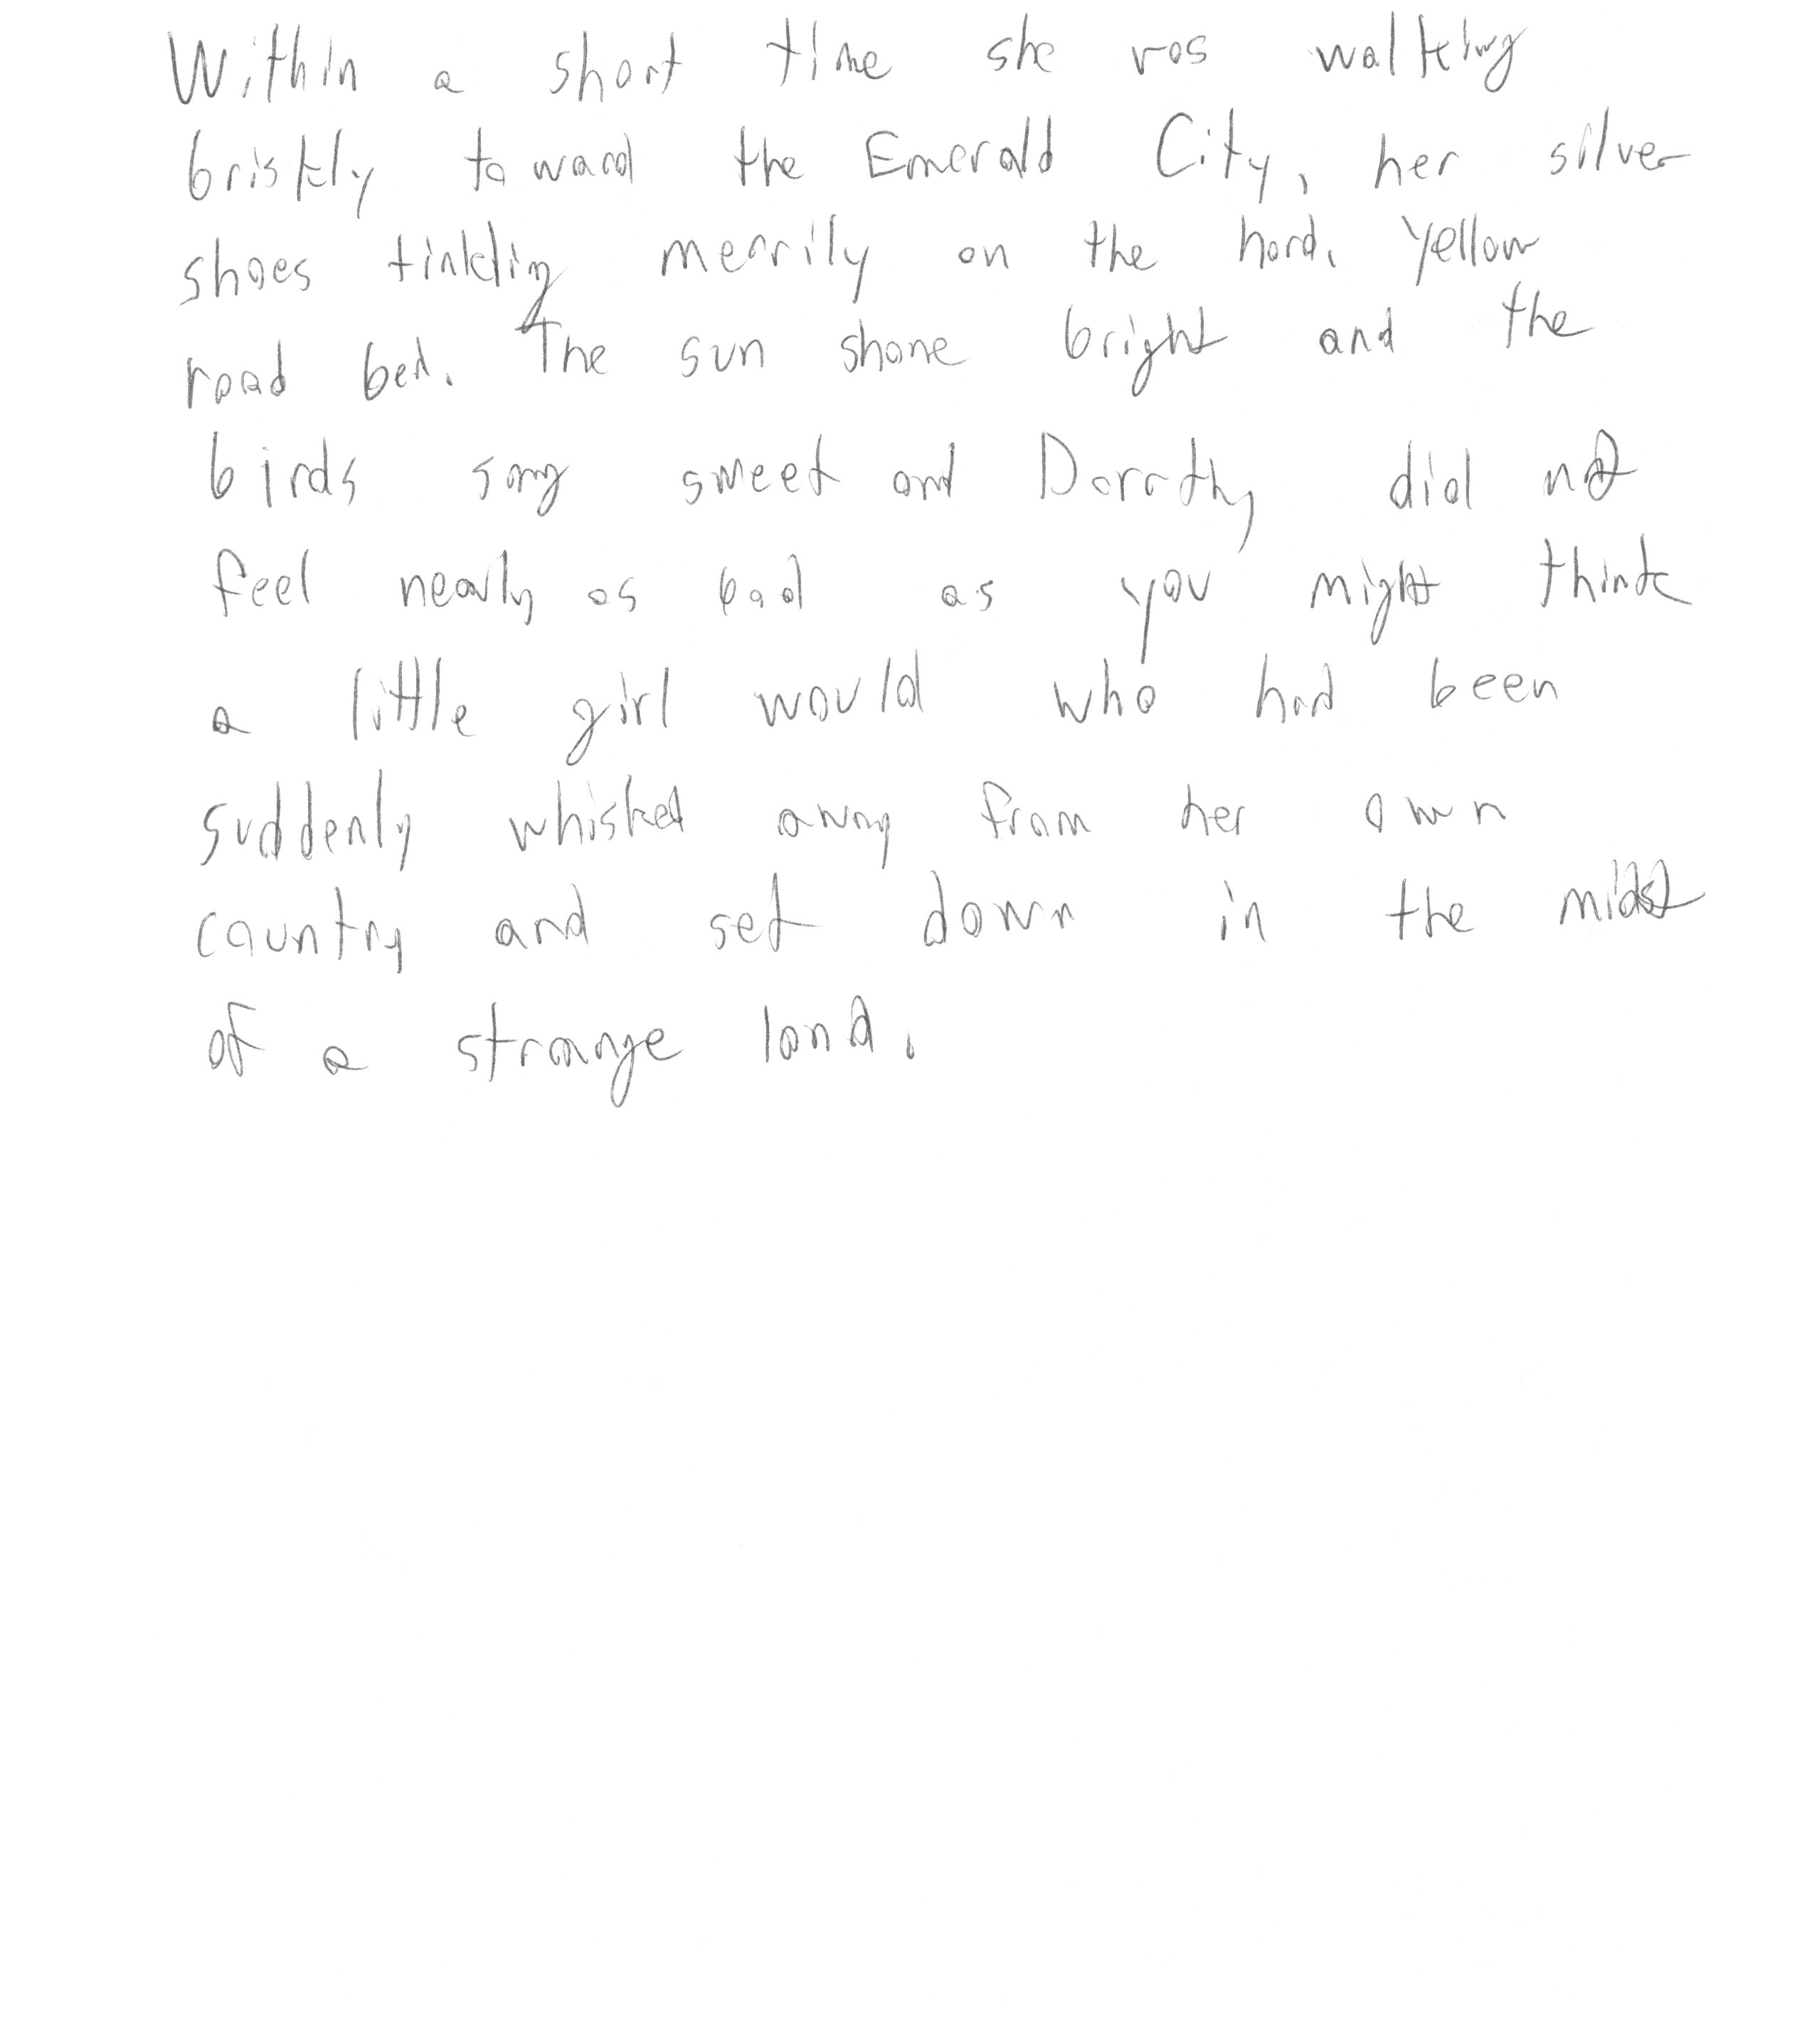 Within a short time she was walking
briskly toward the Emerald City, her silver
shoes tinkling merrily on the hard, yellow
road bed. The sun shone bright and the
birds sang sweet and Dorothy did not
feel nearly as bad as you might think
a little girl would who had been
suddenly whisked away from her own
country and set down in the midst
of a strange land.